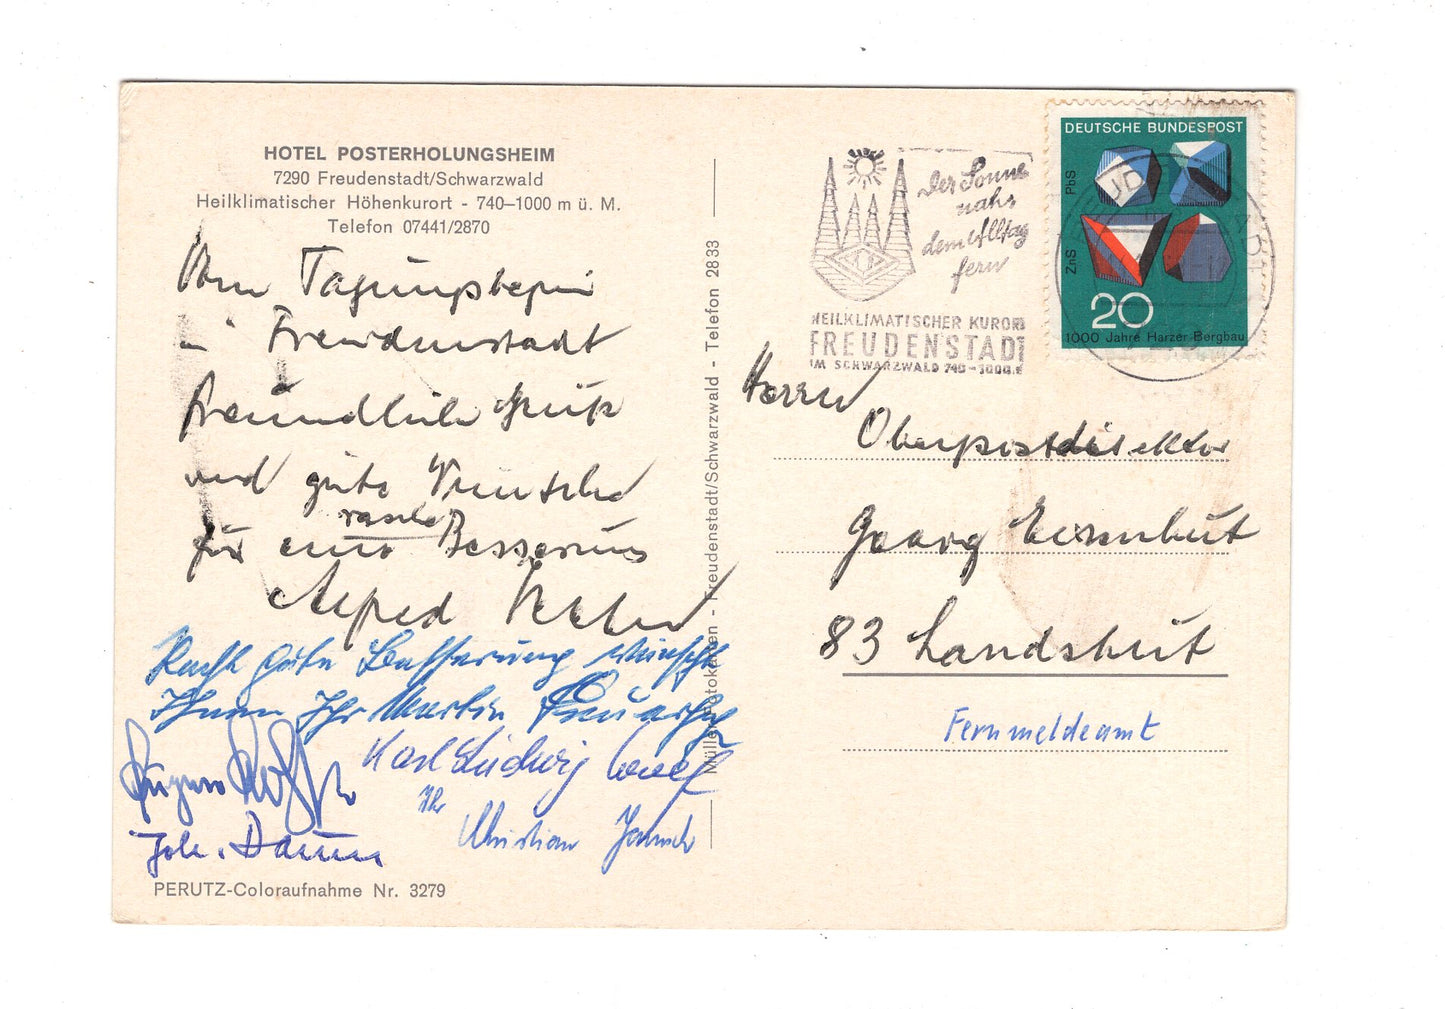 HOTEL POSTERHOLUNGSHEIM
7290 Freudenstadt/Schwarzwald
Heilklimatischer Höhenkurort - 740–1000 m ü. M.
Telefon 07441/2870
Vom Tagungsbeginn
in Freudenstadt
freundliche Grüße
und gute Wünsche
für eine rasche Besserung
Alfred
Recht gute Besserung wünscht
Ihnen Ihr Martin
Karl Ludwig
Ihr
Christian
Joh. Daum
PERUTZ-Coloraufnahme Nr. 3279
Müller-Fotokarten - Freudenstadt/Schwarzwald - Telefon 2833
Der Sonne
nah
dem Alltag
fern
HEILKLIMATISCHER KURORT
FREUDENSTADT
IM SCHWARZWALD 740-1000 M
DEUTSCHE BUNDESPOST
PbS
ZnS
20
1000 Jahre Harzer Bergbau
Herrn
Oberpostdirektor
Georg Eisenhut
83 Landshut
Fernmeldeamt